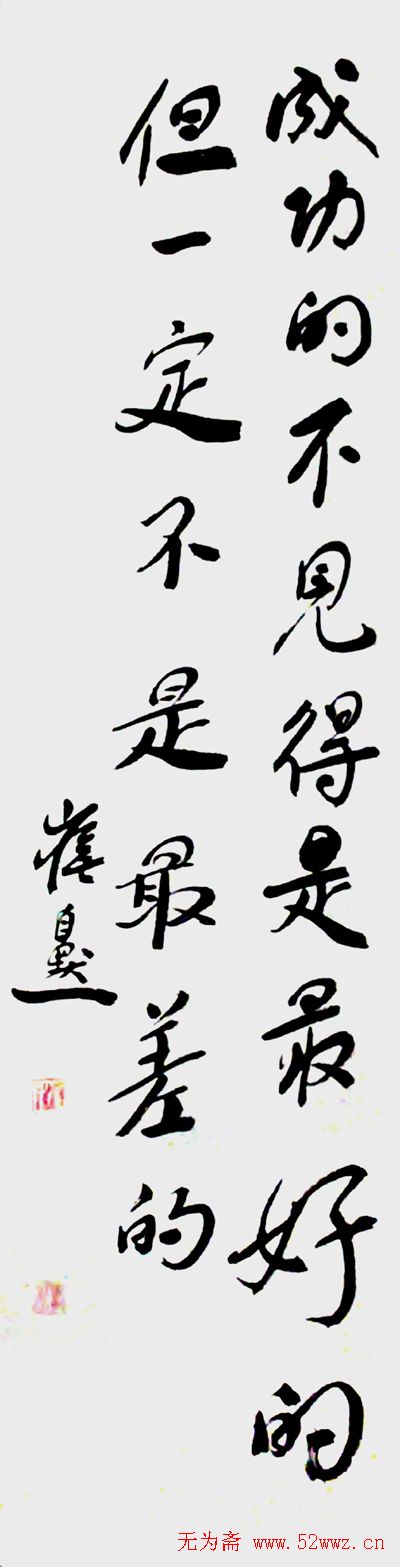 成功的不見得是最好的
但一定不是最差的
崔自默
无为斋 www.52wwz.cn